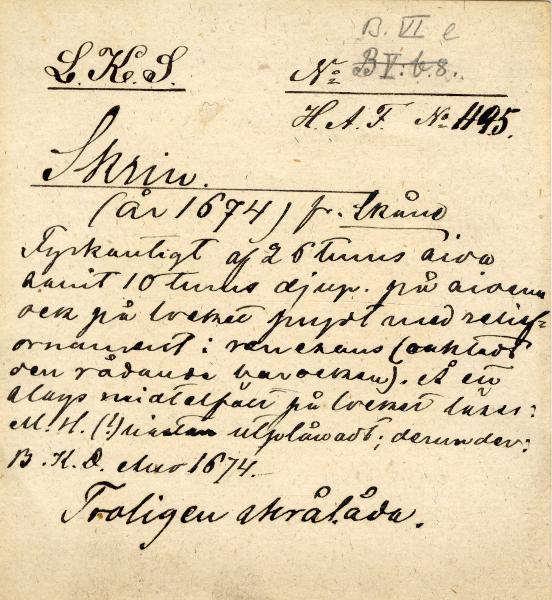 B. VI e
L. K. S.
No B V. b. 8.
H. A. F. No 495.
Skrin.
(år 1674) fr. Skåne
Fyrkantigt af 26 tums sida
samt 10 tums djup. på sidorna
ock på locket prydt med relief-
ornament i renässans (oaktadt
den rådande barocken). Å ett
slags midtelfält på locket läses:
M. H. (!) nästan utplånadt; derunder:
B. K. D. Anno 1674.
Troligen skrålåda.